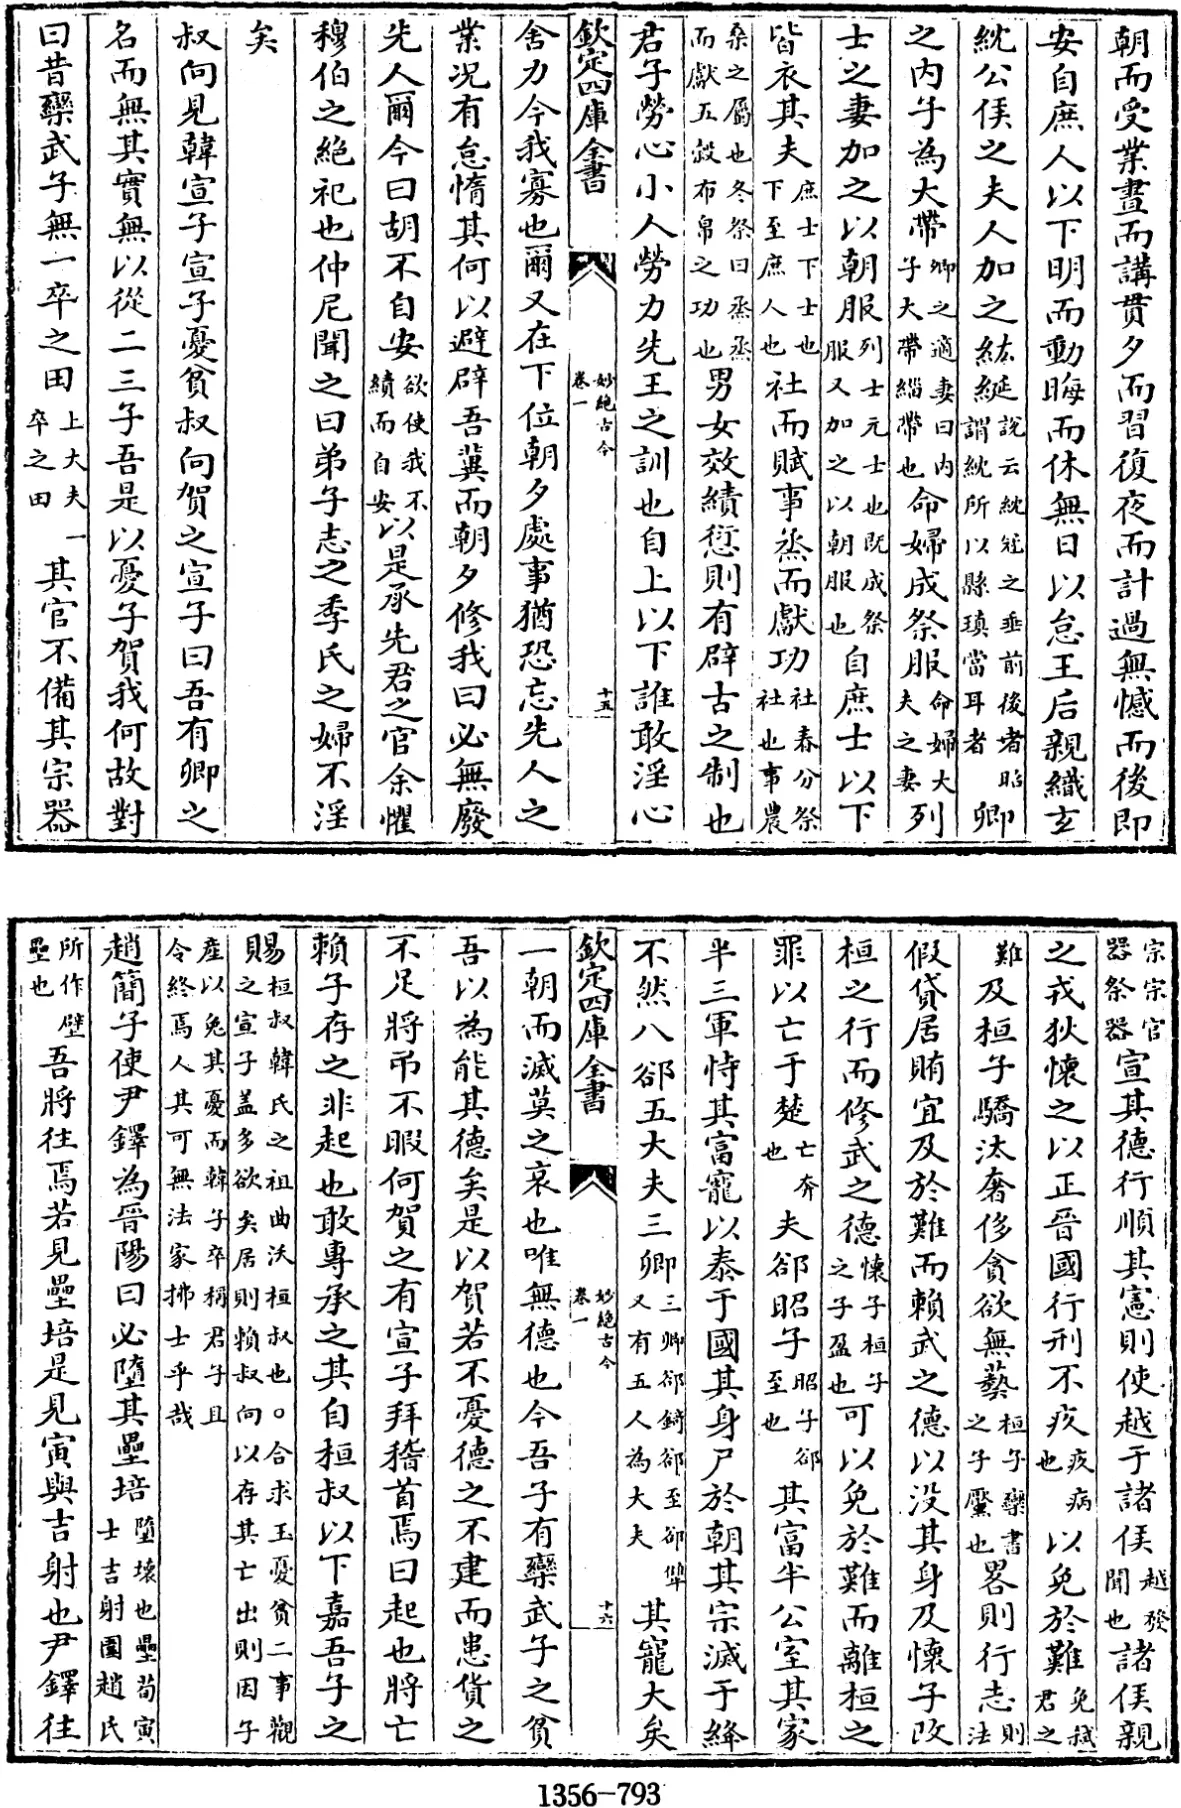 朝而受業晝而講貫夕而習復夜而計過無憾而後即
安自庶人以下明而動晦而休無日以怠王后親織玄
紞公侯之夫人加之紘綖說云紞冠之垂前後者昭謂紞所以縣瑱當耳者卿
之内子為大帶卿之適妻曰内子大帶緇帶也命婦成祭服命婦大夫之妻列
士之妻加之以朝服列士元士也既成祭服又加之以朝服也自庶士以下
皆衣其夫庶士下士也下至庶人也社而賦事烝而獻功社春分祭社也事農
桑之屬也冬祭曰烝烝而獻五穀布帛之功也男女效績愆則有辟古之制也
君子勞心小人勞力先王之訓也自上以下誰敢淫心
欽定四庫全書 妙絶古今 卷一 十五
舍力今我寡也爾又在下位朝夕處事猶恐忘先人之
業況有怠惰其何以避辟吾冀而朝夕修我曰必無廢
先人爾今曰胡不自安欲使我不績而自安以是承先君之官余懼
穆伯之絶祀也仲尼聞之曰弟子志之季氏之婦不淫
矣
叔向見韓宣子宣子憂貧叔向賀之宣子曰吾有卿之
名而無其實無以從二三子吾是以憂子賀我何故對
曰昔欒武子無一卒之田上大夫一卒之田其官不備其宗器
宗宗官器祭器宣其德行順其憲則使越于諸侯越發聞也諸侯親
之戎狄懷之以正晉國行刑不疚疚病也以免於難免弑君之
難及桓子驕汰奢侈貪欲無藝桓子欒書之子黶也畧則行志則法
假貸居賄宜及於難而賴武之德以没其身及懷子改
桓之行而修武之德懷子桓子之子盈也可以免於難而離桓之
罪以亡于楚亡奔也夫郤昭子昭子郤至也其富半公室其家
半三軍恃其富寵以泰于國其身尸於朝其宗滅于絳
不然八郤五大夫三卿三卿郤錡郤至郤犫又有五人為大夫其寵大矣
欽定四庫全書 妙絶古今 卷一 十六
一朝而滅莫之哀也唯無德也今吾子有欒武子之貧
吾以為能其德矣是以賀若不憂德之不建而患貨之
不足將弔不暇何賀之有宣子拜稽首焉曰起也將亡
賴子存之非起也敢專承之其自桓叔以下嘉吾子之
賜桓叔韓氏之祖曲沃桓叔也。合求玉憂貧二事觀之宣子盖多欲矣居則賴叔向以存其亡出則因子
産以免其憂而韓子卒稱君子且令終焉人其可無法家拂士乎哉
趙簡子使尹鐸為晉陽曰必墮其壘培墮壞也壘荀寅士吉射圍趙氏
所作壁壘也吾將往焉若見壘培是見寅與吉射也尹鐸往
1356-793